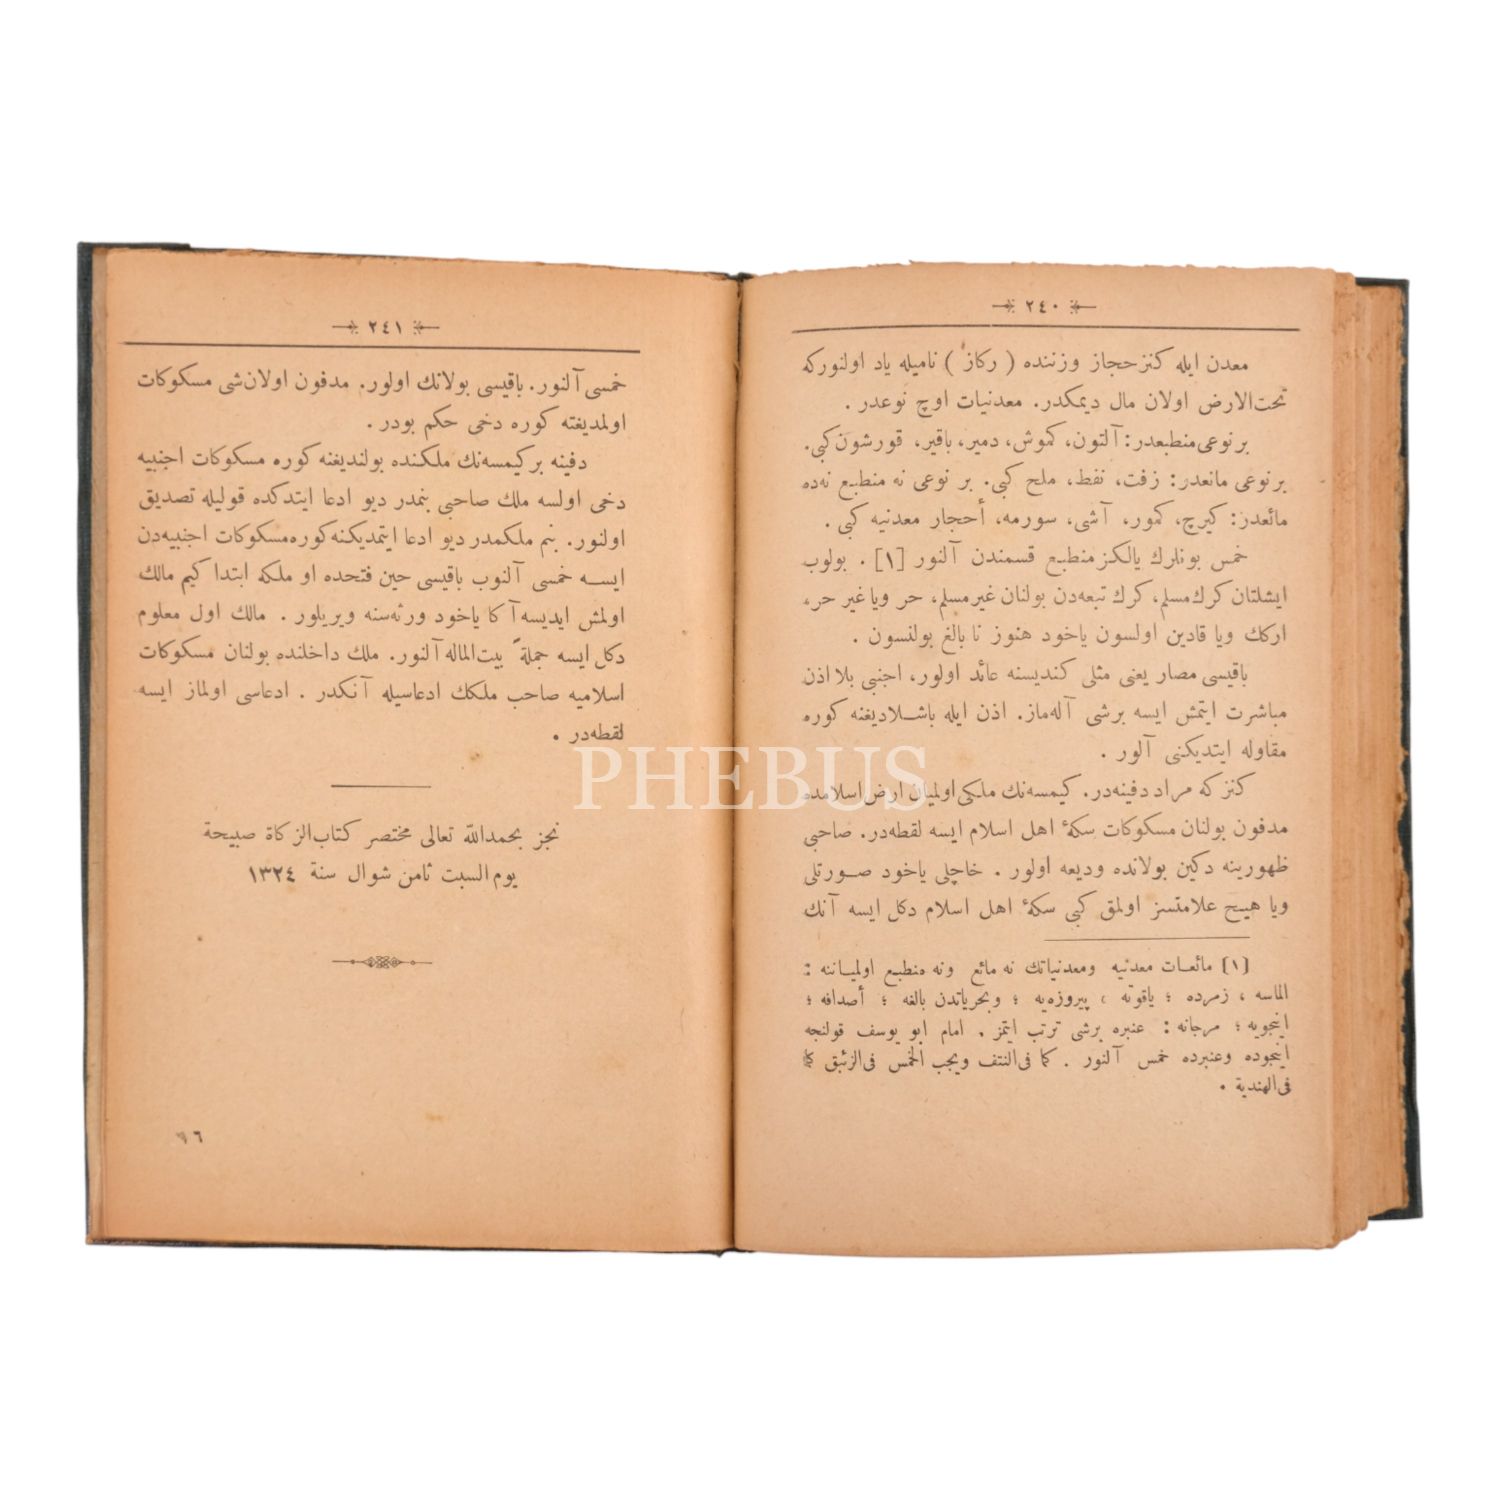 ٢٤٠
معدن ايله كنز حجاز وزننده ( ركاز ) ناميله ياد اولنوركه
تحت‌الارض اولان مال ديمكدر. معدنيات اوچ نوعدر .
بر نوعى منطبعدر: آلتون، كموش، دمير، باقير، قورشون كبى.
بر نوعى مائعدر: زفت، نفط، ملح كبى. بر نوعى نه منطبع نه‌ده
مائعدر: كيرچ، كمور، آشى، سورمه، أحجار معدنيه كبى .
خمس بونلرك يالكز منطبع قسمندن آلنور [١] . بولوب
ايشلتان كرك مسلم، كرك تبعه‌دن بولنان غير مسلم، حر ويا غير حر،
اركك ويا قادين اولسون ياخود هنوز نا بالغ بولنسون .
باقيسى مصار يعنى مثلى كنديسنه عائد اولور، اجنبى بلا اذن
مباشرت ايتمش ايسه برشى آله‌ماز. اذن ايله باشلاديغنه كوره
مقاوله ايتديكنى آلور .
كنز كه مراد دفينه‌در. كيمسه‌نك ملكى اولميان ارض اسلامده
مدفون بولنان مسكوكات سكهٔ اهل اسلام ايسه لقطه‌در. صاحبى
ظهورينه دكين بولانده وديعه اولور . خاچلى ياخود صورتلى
ويا هيچ علامتسز اولمق كبى سكهٔ اهل اسلام دكل ايسه آنك
(١) مائعات معدنيه ومعدنياتك نه مائع ونه منطبع اولمياننه :
الماسه ، زمرده ؛ ياقوته ، پيروزه‌يه ؛ وبحرياتدن بالغه ؛ أصدافه ؛
اينجويه ؛ مرجانه : عنبره برشى ترتب ايتمز . امام ابو يوسف قولنجه
اينجوده وعنبرده خمس آلنور . كما فى‌النتف ويجب الخمس فى‌الزئبق كما
فى‌الهندية .
٢٤١
خمسى آلنور. باقيسى بولانك اولور. مدفون اولان شى مسكوكات
اولمديغنه كوره دخى حكم بودر.
دفينه بر كيمسه‌نك ملكنده بولنديغنه كوره مسكوكات اجنبيه
دخى اولسه ملك صاحبى بنمدر ديو ادعا ايتدكده قوليله تصديق
اولنور. بنم ملكمدر ديو ادعا ايتمديكنه كوره مسكوكات اجنبيه‌دن
ايسه خمسى آلنوب باقيسى حين فتحده او ملكه ابتدا كيم مالك
اولمش ايديسه آكا ياخود ورثه‌سنه ويريلور . مالك اول معلوم
دكل ايسه جملةً بيت‌الماله آلنور. ملك داخلنده بولنان مسكوكات
اسلاميه صاحب ملكك ادعاسيله آنكدر . ادعاسى اولماز ايسه
لقطه‌در .
نجز بحمدالله تعالى مختصر كتاب‌الزكاة صبيحة
يوم السبت ثامن شوال سنة ١٣٢٤
١٦
PHEBUS